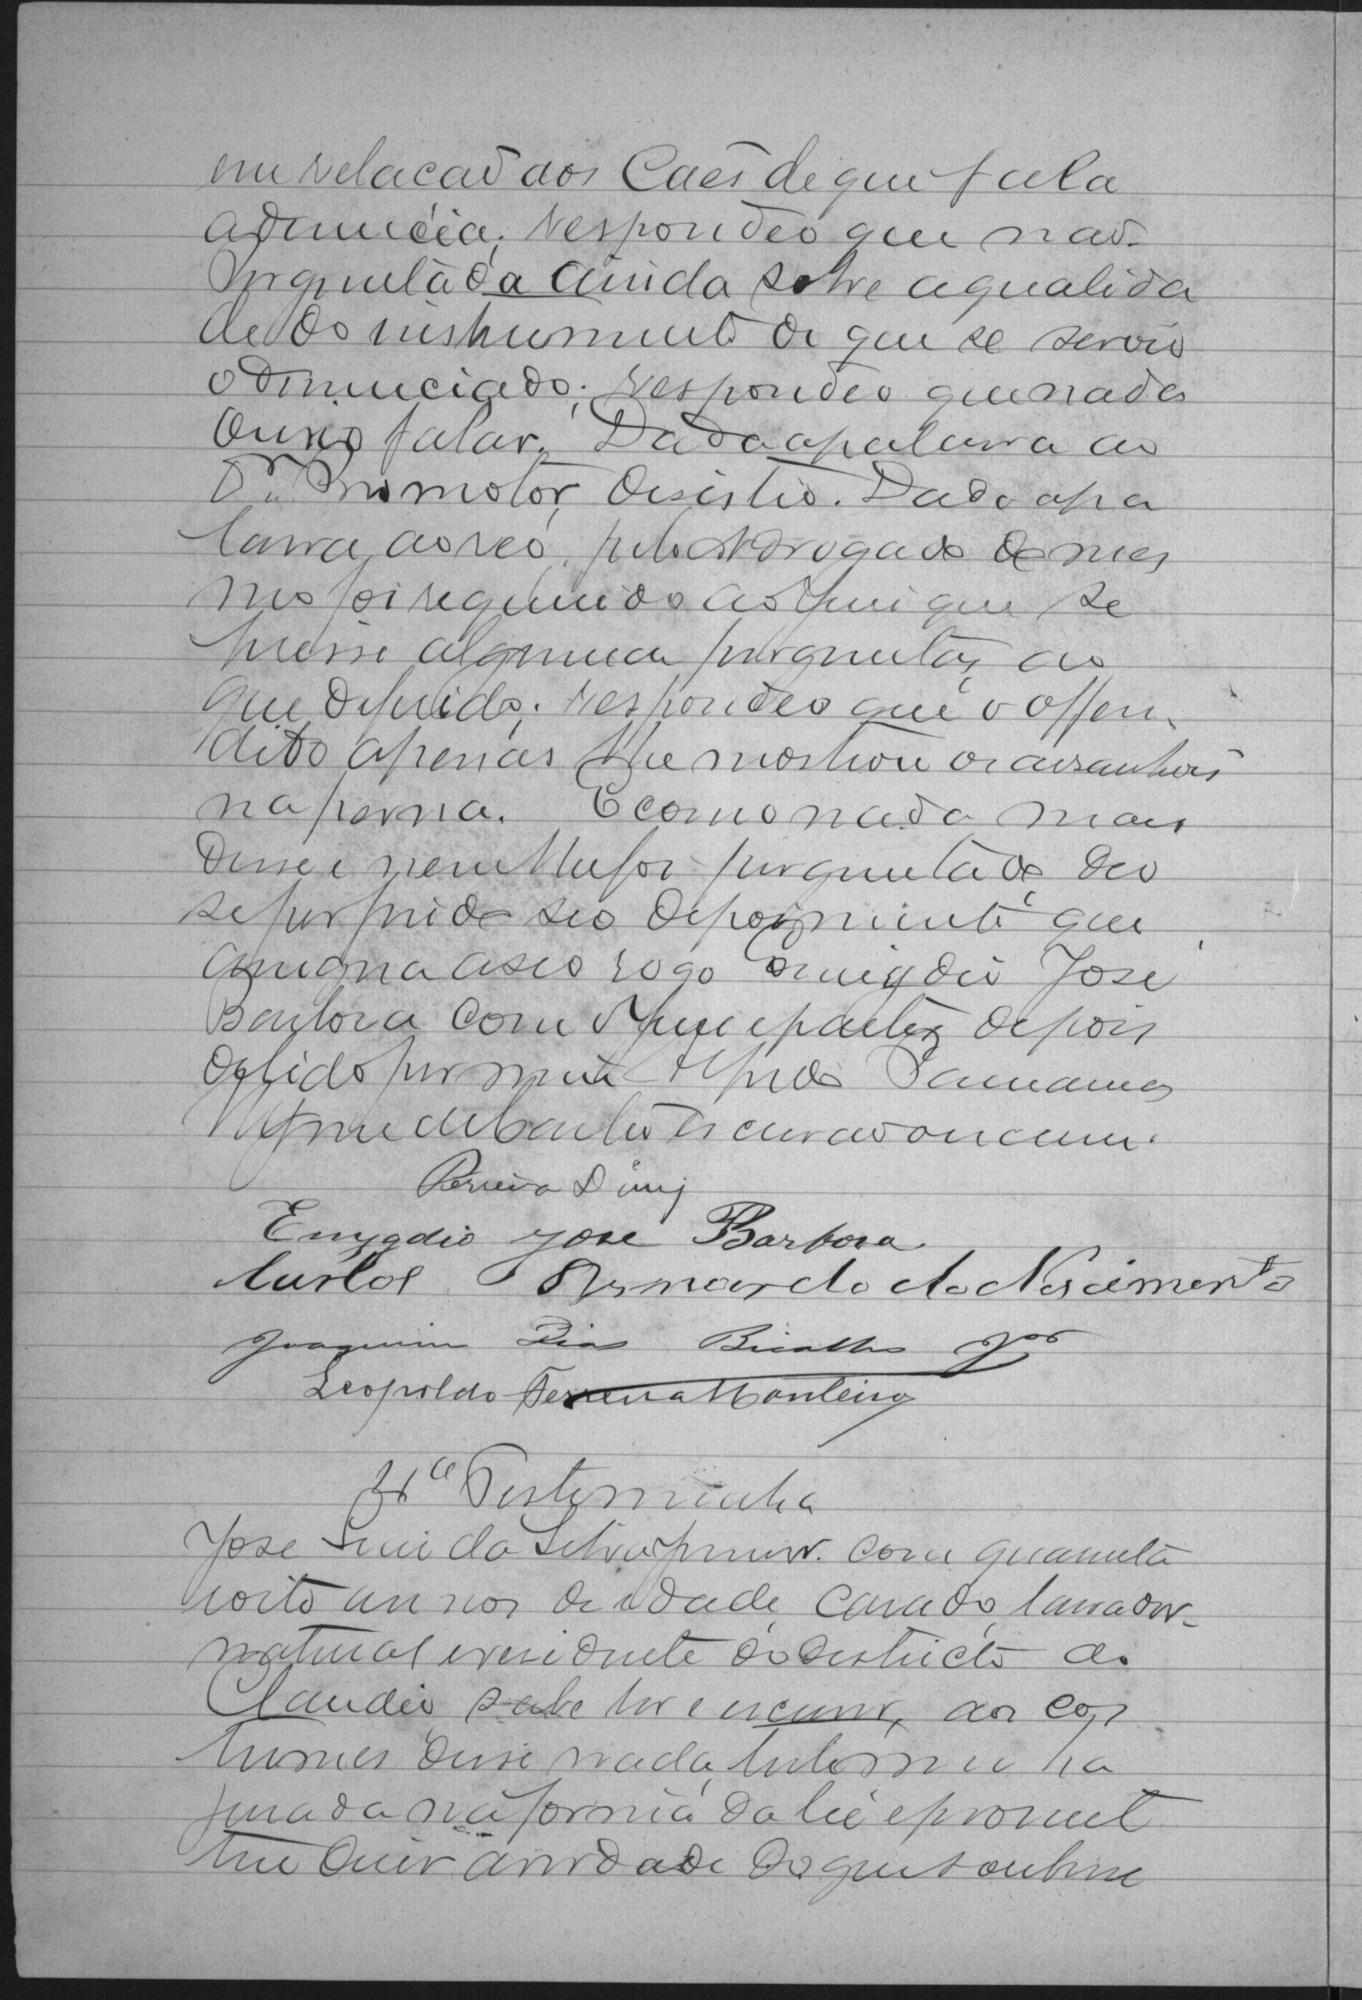 em relacaõ aos Caẽs de que fala
a denuncia; respondeo que naõ.
Perguntada ainda sobre a qualida
de do instrumento de que se servio
o denunciado; respondeo que nada
ouvio falar. Dada a palavra ao
Dr. Promotor, desistio. Dado a pa
lavra ao reo, pelo Advogado do mes
mo foi requerido ao Juiz que se
fizesse algumas perguntas, ao
que deferido; respondeo que o offen
dido apenas lhe mostrou os arranhoẽs
na perna. E como nada mais
disse e nem lhe foi perguntado, deo
se por findo seo depoimento que
assigna a seo rogo Emigdio José
Barbosa com o Juiz e partes depois
de lido por mim Alfredo
Escrivaõ o escrevi.
Pereira Diniz
Emygdio Jose Barbosa
Carlos Bernardo do Nascimento
Joaquim Dias Bicalho Jor
Leopoldo Ferreira Monteiro
Testeminha
Jose Luis da Silva Junior. com quarenta
e oito annos de idade, casado, lavrador
natural e residente do destricto do
Claudio, sabe ler e escrever, aos cos
tumes disse nada, testeminha
jurada na forma da lei e promet
teu diser a verdade do que soubesse